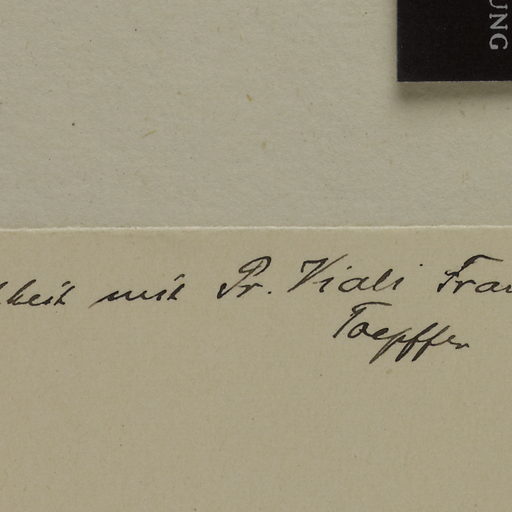 UNG
heit mit Pr. Viali Frau
Toepffer